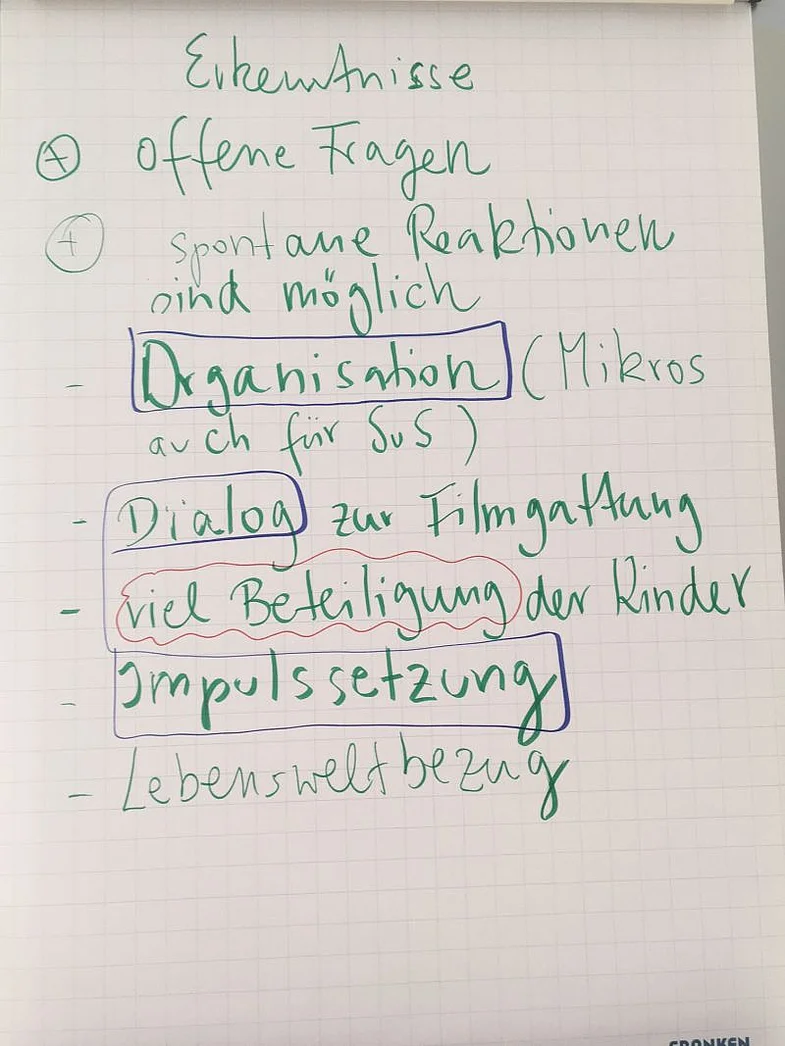 Erkenntnisse
+ offene Fragen
+ spontane Reaktionen
sind möglich
- Organisation (Mikros
auch für SuS)
- Dialog zur Filmgattung
- viel Beteiligung der Kinder
- Impulssetzung
- Lebensweltbezug
FRANKEN